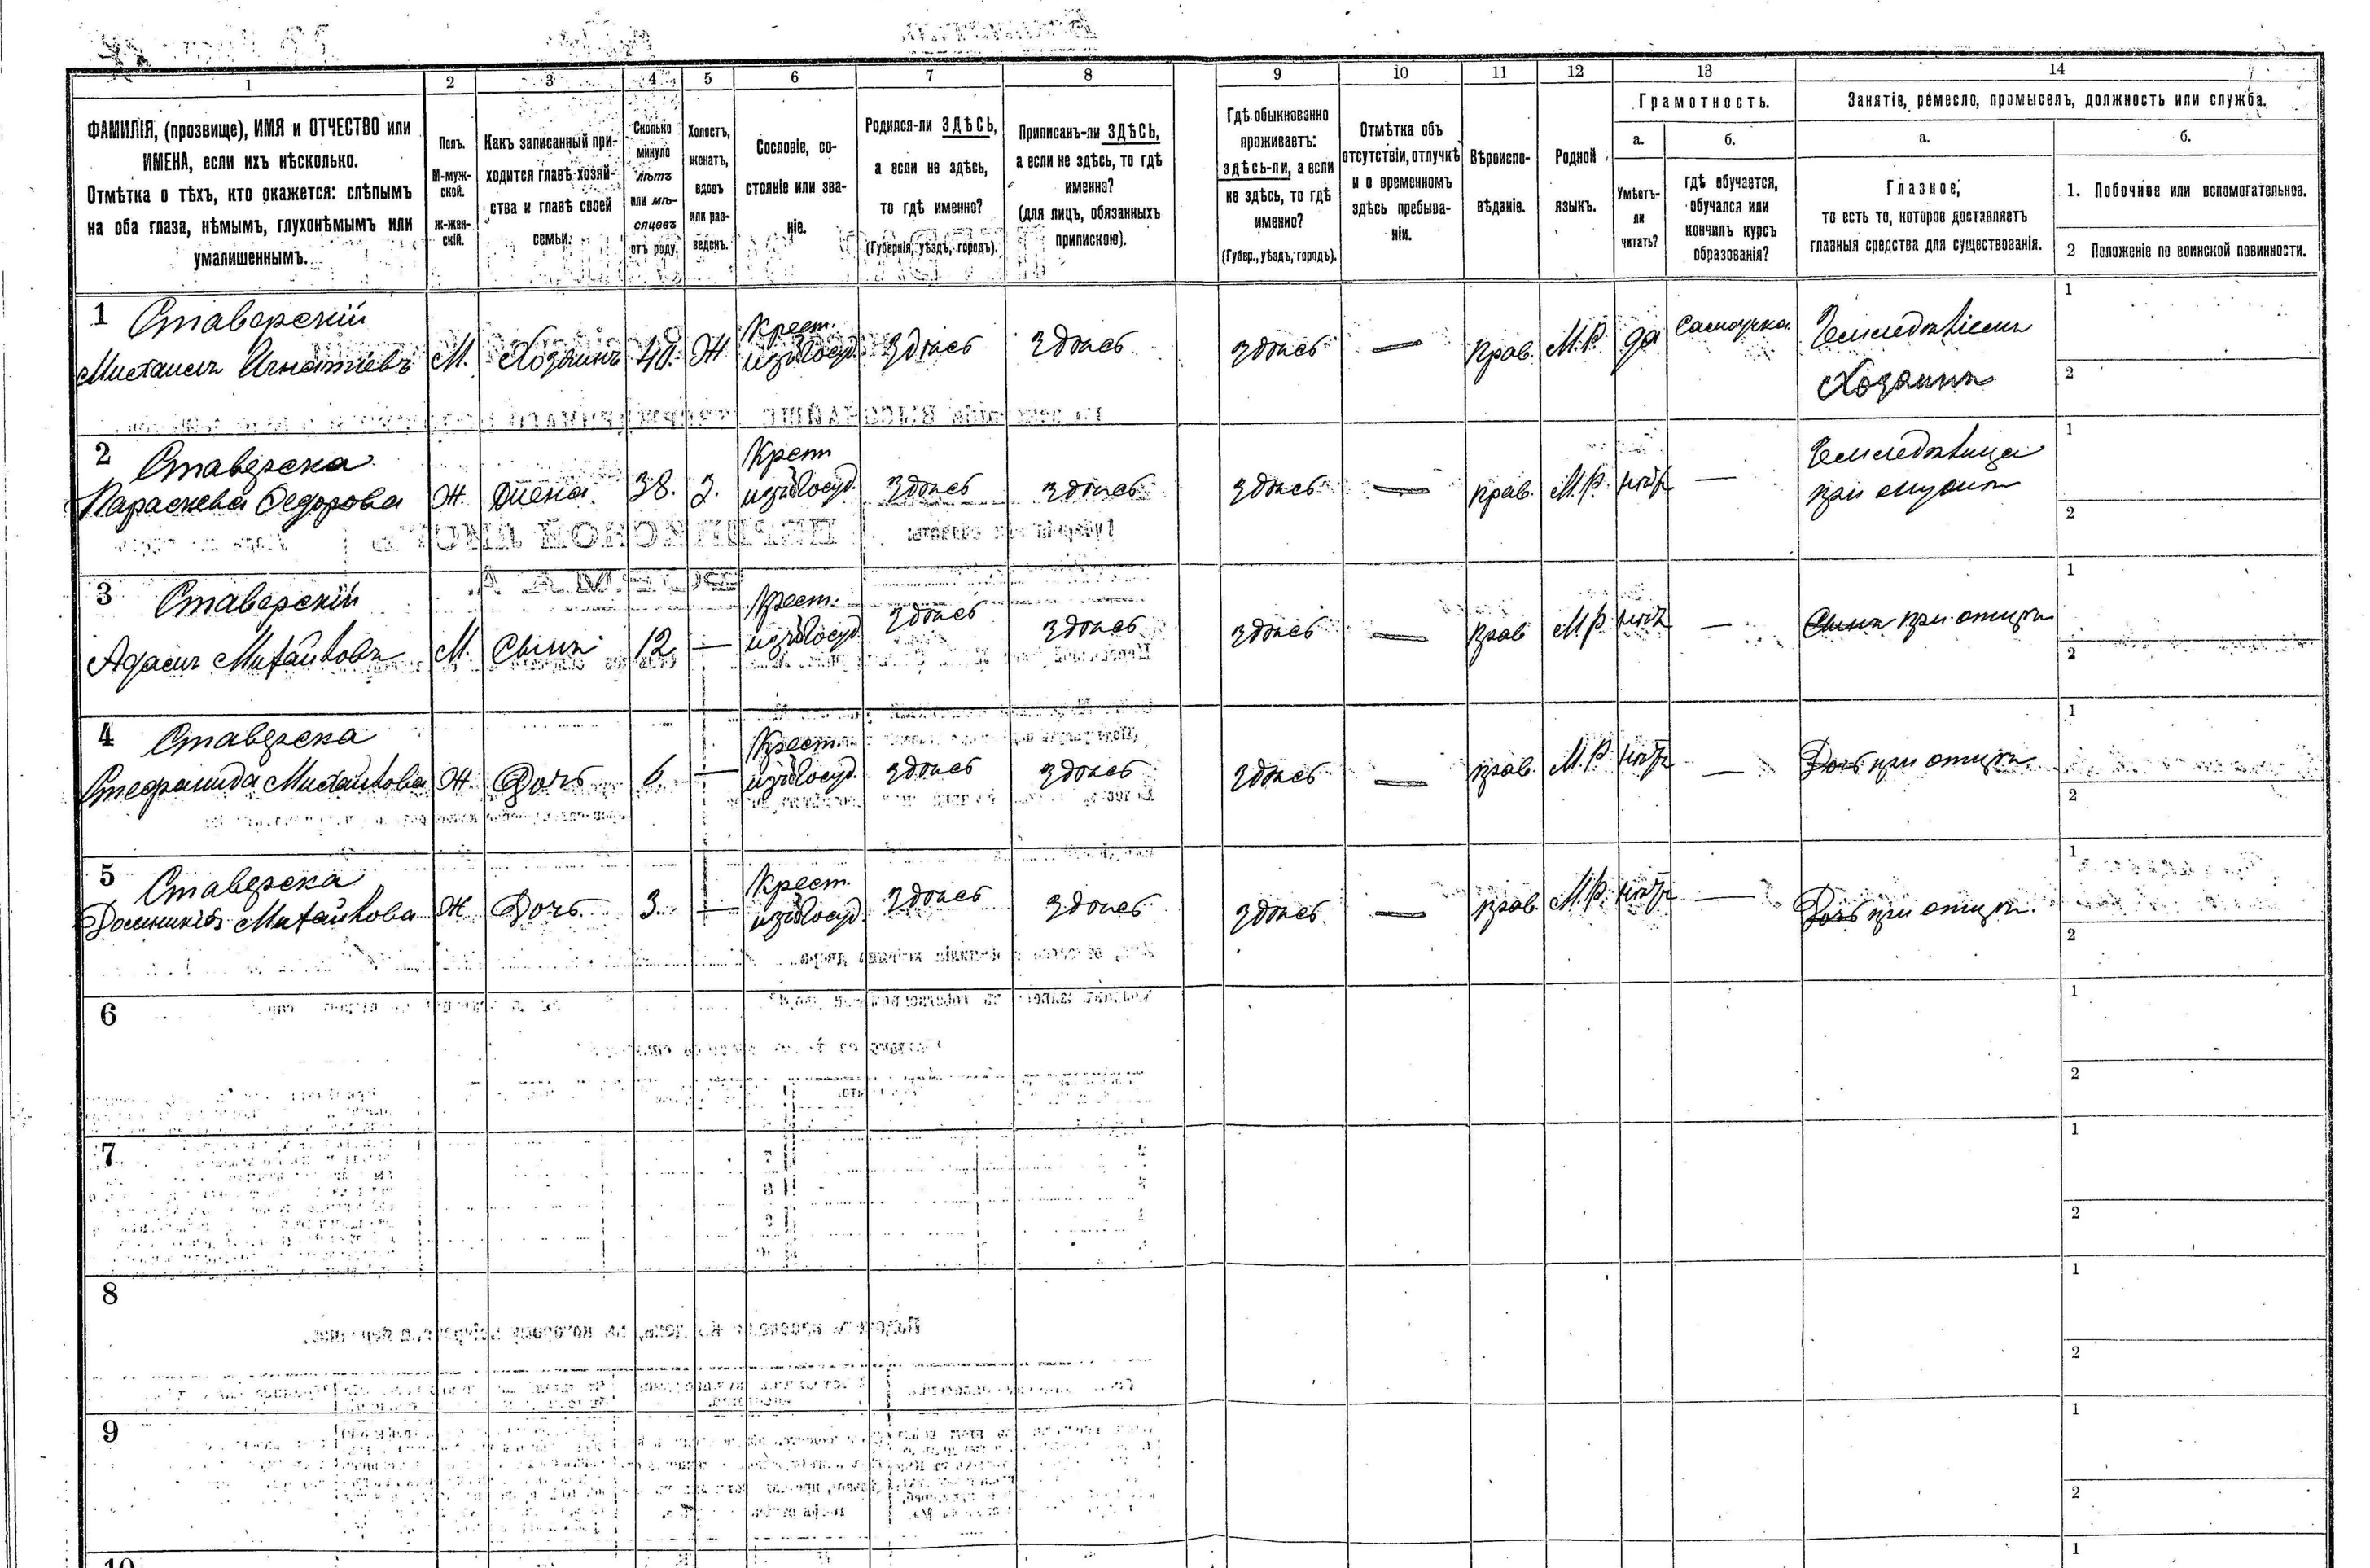 1 2 3 4 5 6 7 8 9 10 11 12 13 14
ФАМИЛІЯ, (прозвище), ИМЯ и ОТЧЕСТВО или
ИМЕНА, если ихъ нѣсколько.
Отмѣтка о тѣхъ, кто окажется: слѣпымъ
на оба глаза, нѣмымъ, глухонѣмымъ или
умалишеннымъ.
Полъ.
М-муж-
ской.
ж-жен-
скій.
Какъ записанный при-
ходится главѣ хозяй-
ства и главѣ своей
семьи.
Сколько
минуло
лѣтъ
или мѣ-
сяцевъ
отъ роду.
Холостъ,
женатъ,
вдовъ
или раз-
веденъ.
Сословіе, со-
стояніе или зва-
ніе.
Родился-ли ЗДѢСЬ,
а если не здѣсь,
то гдѣ именно?
(Губернія, уѣздъ, городъ).
Приписанъ-ли ЗДѢСЬ,
а если не здѣсь, то гдѣ
именно?
(для лицъ, обязанныхъ
припискою).
Гдѣ обыкновенно
проживаетъ:
здѣсь-ли, а если
не здѣсь, то гдѣ
именно?
(Губер., уѣздъ, городъ).
Отмѣтка объ
отсутствіи, отлучкѣ
и о временномъ
здѣсь пребыва-
ніи.
Вѣроиспо-
вѣданіе.
Родной
языкъ.
Грамотность.
а.
Умѣетъ-
ли
читать?
б.
гдѣ обучается,
обучался или
кончилъ курсъ
образованія?
Занятіе, ремесло, промыселъ, должность или служба.
а.
Главное,
то есть то, которое доставляетъ
главныя средства для существованія.
б.
1. Побочное или вспомогательное.
2 Положеніе по воинской повинности.
1 Ставерскій
Михаилъ Игнатіевъ М. Хозяинъ 40. Ж Крест.
изъ госуд. Здѣсь Здѣсь Здѣсь — Прав. М. Р. да Самоучка. Земледѣліемъ
Хозяинъ
1
2
2 Ставерска
Параскева Федорова Ж Жена 38. З. Крест
изъ госуд. Здѣсь Здѣсь Здѣсь — прав. М. Р. нѣтъ —
при мужѣ
1
2
3 Ставерскій
Адамъ Михайловъ М. Сынъ 12 — Крест.
изъ госуд. Здѣсь Здѣсь Здѣсь — прав М Р нѣтъ — Сынъ при отцѣ
1
2
4 Ставерска
Стефанида Михайлова Ж Дочь 6. — Крест.
изъ госуд. Здѣсь Здѣсь Здѣсь — прав. М. Р нѣтъ — Дочь при отцѣ
1
2
5 Ставерска
Михайлова Ж Дочь 3. — Крест.
изъ госуд Здѣсь Здѣсь Здѣсь — прав. М. Р. нѣтъ — Дочь при отцѣ.
1
2
6
1
2
7
1
2
8
1
2
9
1
2
10
1